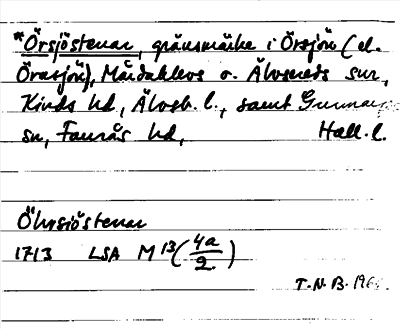 *Örsjöstenar, gränsmärke i Örsjön (el.
Örasjön), Mårdaklevs o. Älvsereds snr,
Kinds hd, Älvsb. l., samt Gunnarps
sn, Faurås hd, Hall. l.
Öhrsiöstenar
1713 LSA M 13 (4a/2)
T.N.B.